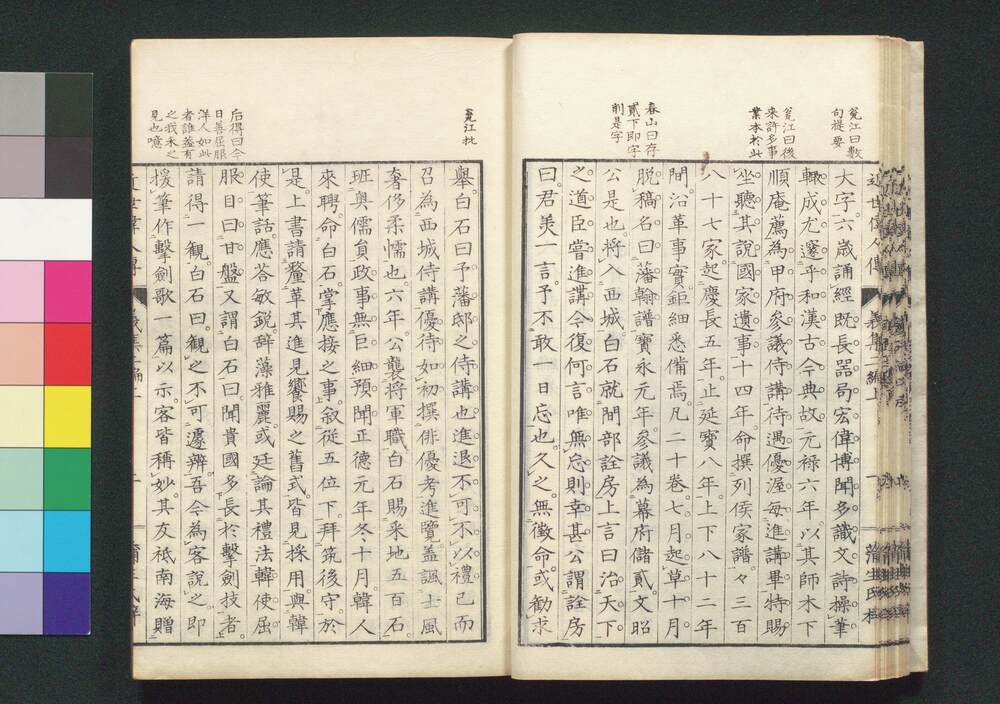 近世偉人傳 義集二編上 蒲生氏梓
大字六歲誦經既長器局宏偉博聞多識文詩操筆
輒成尤邃乎和漢古今典故元祿六年以其師木下
順庵薦為甲府參議侍講待遇優渥每進講畢特賜
坐聽其說國家遺事十四年命撰列侯家譜々三百
八十七家起慶長五年止延寶八年上下八十二年
間沿革事實鉅細悉備焉凡二十卷七月起草十月
脫稿名曰藩翰譜寶永元年參議為幕府儲貳文昭
公是也將入西城白石就間部詮房上言曰治天下
之道臣嘗進講今復何言唯無忘則幸甚公謂詮房
曰君美一言予不敢一日忘也久之無徵命或勸求
舉白石曰予藩邸之侍講也進退不可不以禮已而
召為西城侍講優待如初撰俳優考進覽蓋諷士風
奢侈柔懦也六年公襲將軍職白石賜采地五百石
班奧儒負政事無巨細預聞正德元年冬十月韓人
來聘命白石掌應接之事叙從五位下拜筑後守於
是上書請釐革其進見饗賜之舊式皆見採用與韓
使筆話應荅敏銳辭藻雅麗或廷論其禮法韓使屈
服目曰甘盤又謂白石曰聞貴國多長於擊劍技者
請得一觀白石曰觀之不可遽辨吾今為客說之即
援筆作擊劍歌一篇以示客皆稱妙其友祇南海贈
冤江曰數
句提要
冤江曰後
來許多事
業本於此
春山曰存
貳下即字
削是字
冤江批
后得曰今
日善屈服
洋人如此
者誰蓋有
之我未之
見也噫